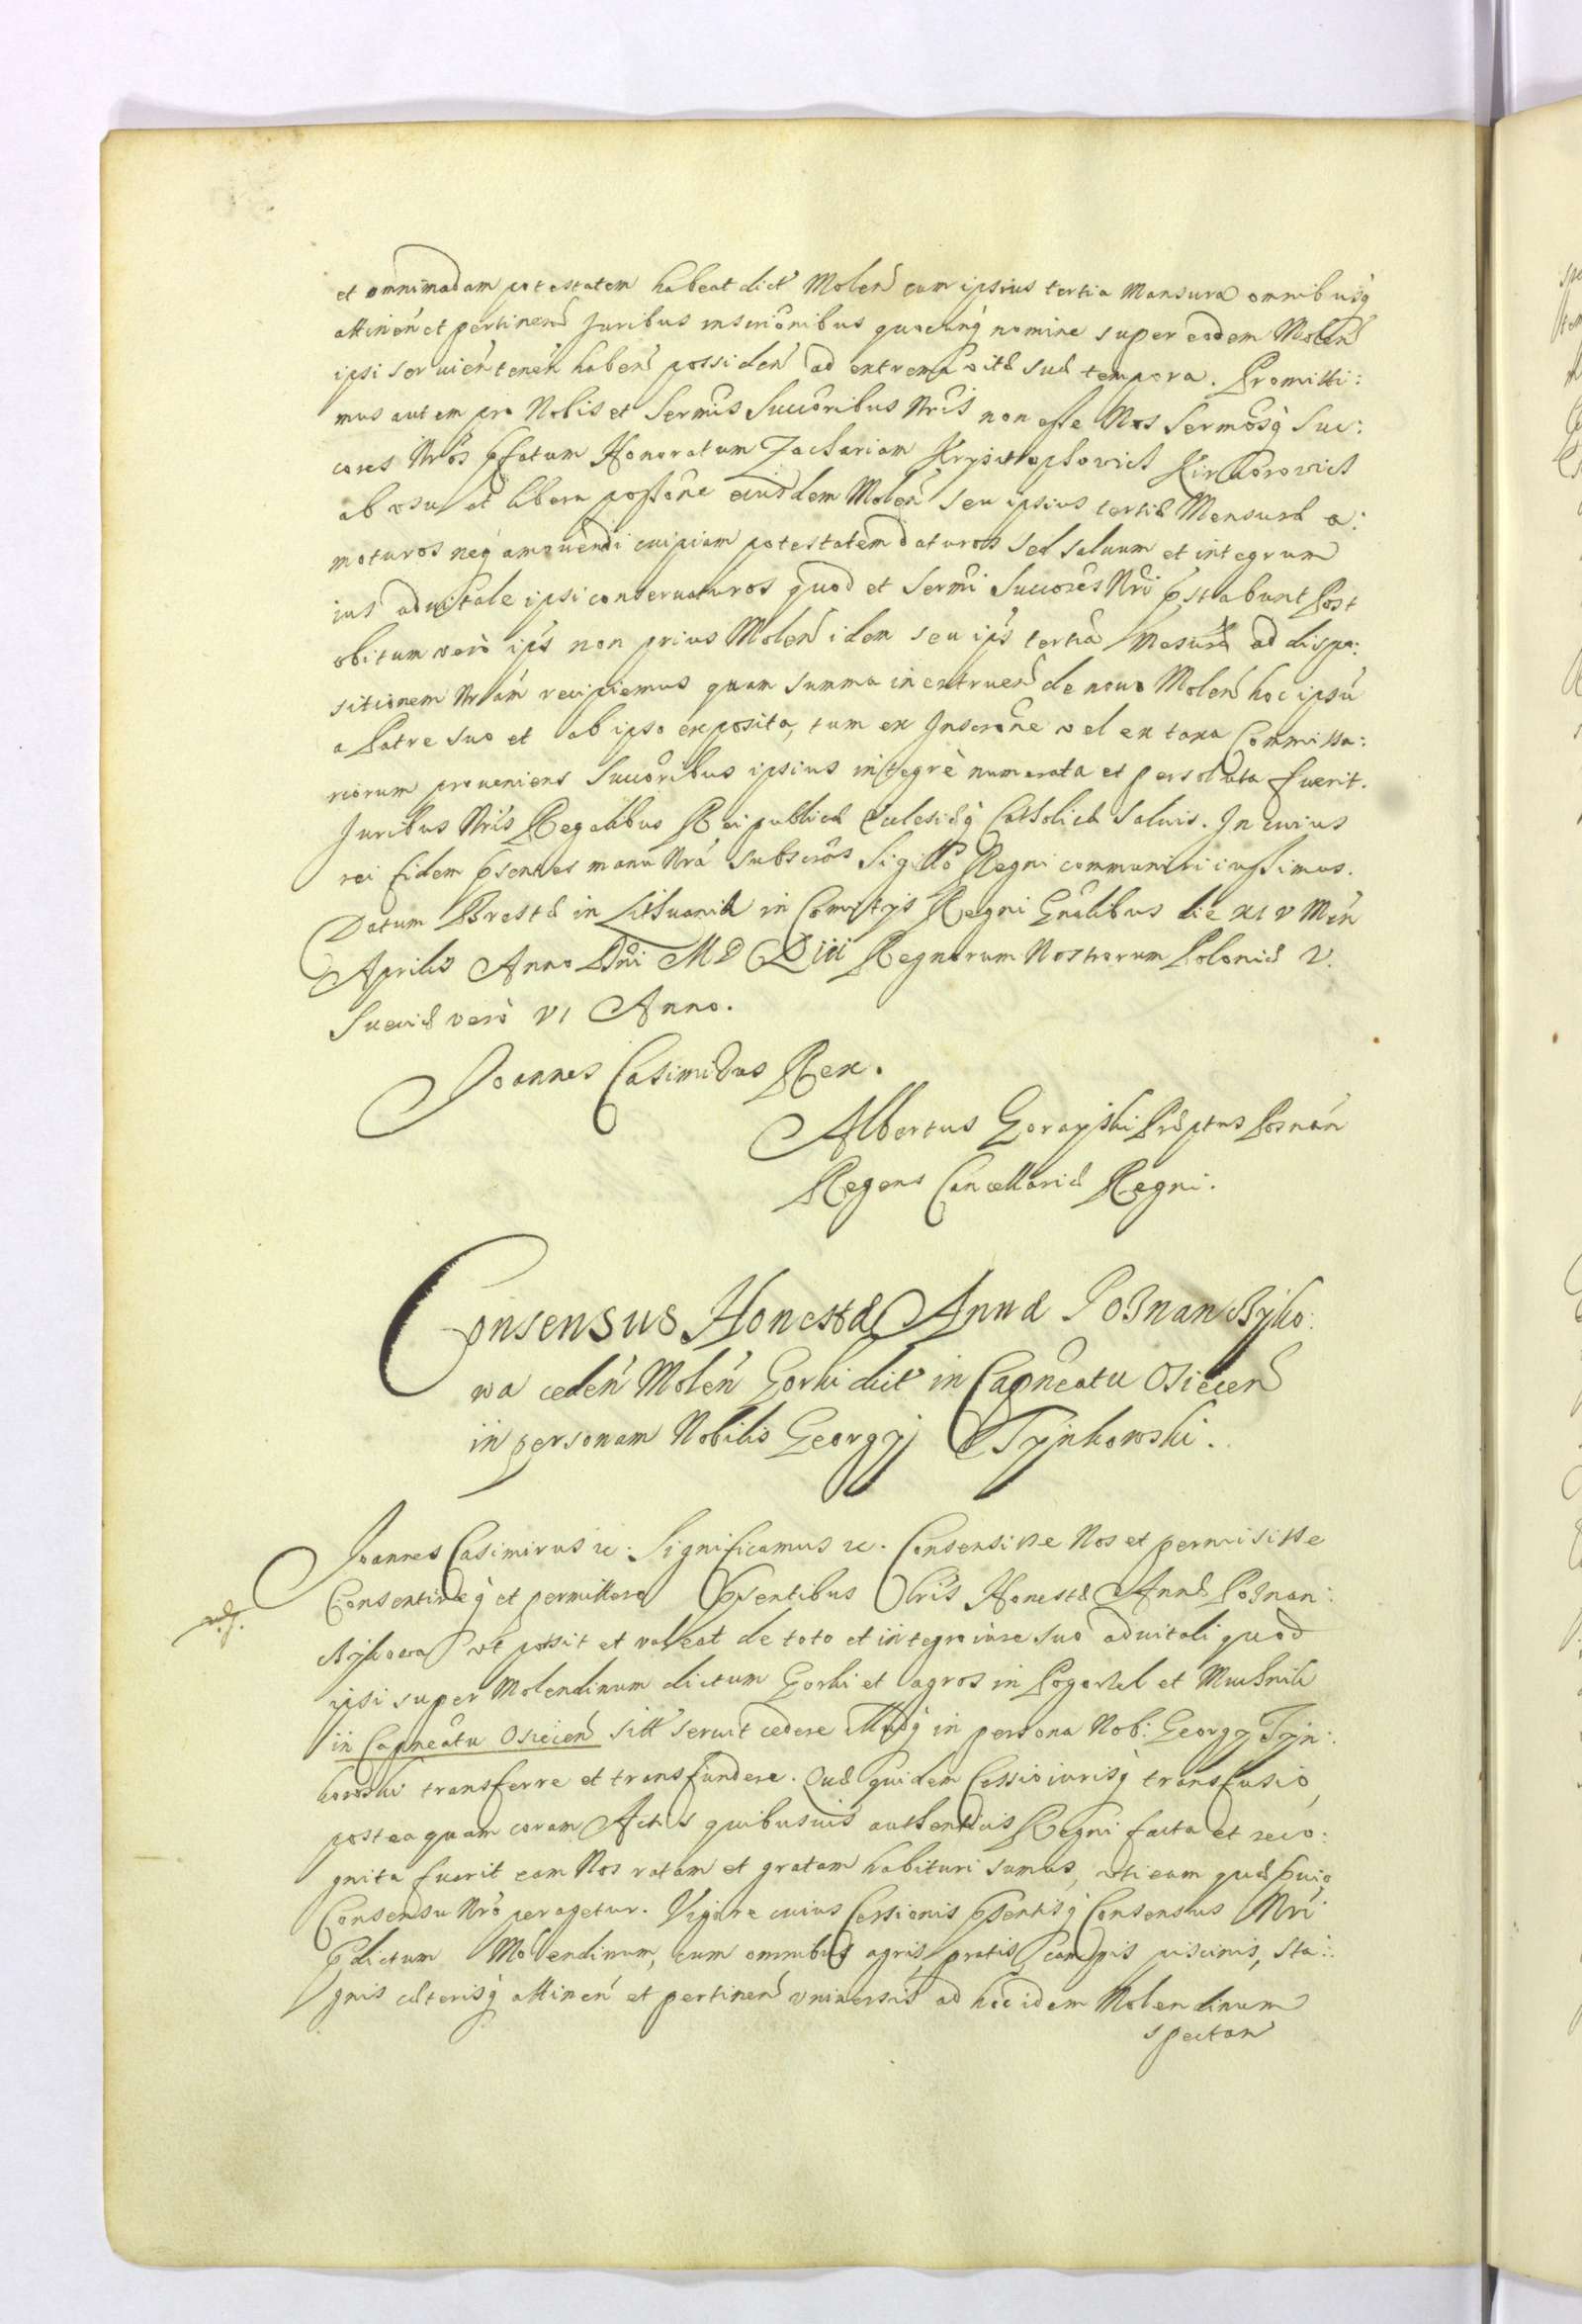 et omnimodam potestatem habeat dict Molen cum ipsius tertia Mansura omnibusq
attinen et pertinen Juribus inscrionibus quocunq nomine super eodem Molen
ipsi servien tenen haben possiden ad extrema vitæ suæ tempora. Promitti:
mus autem pro Nobis et Sermis Succoribus Nris non esse Nos Sermosq Suc:
cores Nros pfatum Honoratum Zachariam Krysztophowich
ab vsu et libera possone eiusdem Molen seu ipsius tertiæ Mensuræ a:
moturos neq amouendi cuipiam potestatem daturos sed saluum et integrum
ius aduitale ipsi conseruaturos quod et Sermi Succores Nri pstabunt Post
obitum vero ips non prius Molen idem seu ips tertia Mesura ad dispo:
sitionem Nram recipiemus quam summa in extruen de nouo Molen hoc ipsu
a Patre suo et ab ipso exposita, tum ex Inscrone vel ex taxa Commissa:
riorum proueniens Succoribus ipsius integrè numerata et persoluta fuerit.
Juribus Nris Regalibus Reipublicæ Ecclesiæq Catholicæ saluis. In cuius
rei fidem psentes manu Nra subscras Sigillo Regni communiri iussimus.
Datum Brestæ in Lithuania in Comitys Regni Gnalibus die XIV Men
Aprilis Anno Dni MDCLIII Regnorum Nostrorum Poloniæ V.
Sueciæ verò VI Anno.
Joannes Casimirus Rex.
Albertus Gorayski Præptus Posnan
Regens Cancellariæ Regni.
Consensus Honestæ Annæ Poznan Byko:
wa ceden Molen Gorki dict in Capneatu Osiecen
in personam Nobilis Georgij Tynkowski.
Joannes Casimirus &c: Significamus &c. Consensisse Nos et permisisse
Consentireq et permittere psentibus Lris Honestæ Annæ Poznan:
Bykowa vt possit et valeat de toto et integro iure suo aduitali quod
ipsi super Molendinum dictum Gorki et agros in Pogorzel et
in Capneatu Osiecen sitt seruit cedere Illudq in persona Nob: Georgy Tyn:
kowski transferre et transfundere. Quæ quidem Cessio iurisq transfusio,
posteaquam coram Actis quibusuis authenticis Regni facta et reco:
gnita fuerit eam Nos ratam et gratam habituri sumus, vti eam quæ puio
Consensu Nro peragetur. Vigore cuius Cessionis psentisq Consensus Nri
pdictum Molendinum, cum omnibus agris, pratis, campis piscinis, sta:
gnis cæterisq attinen et pertinen vniuersis ad hoc idem Molendinum
spectan